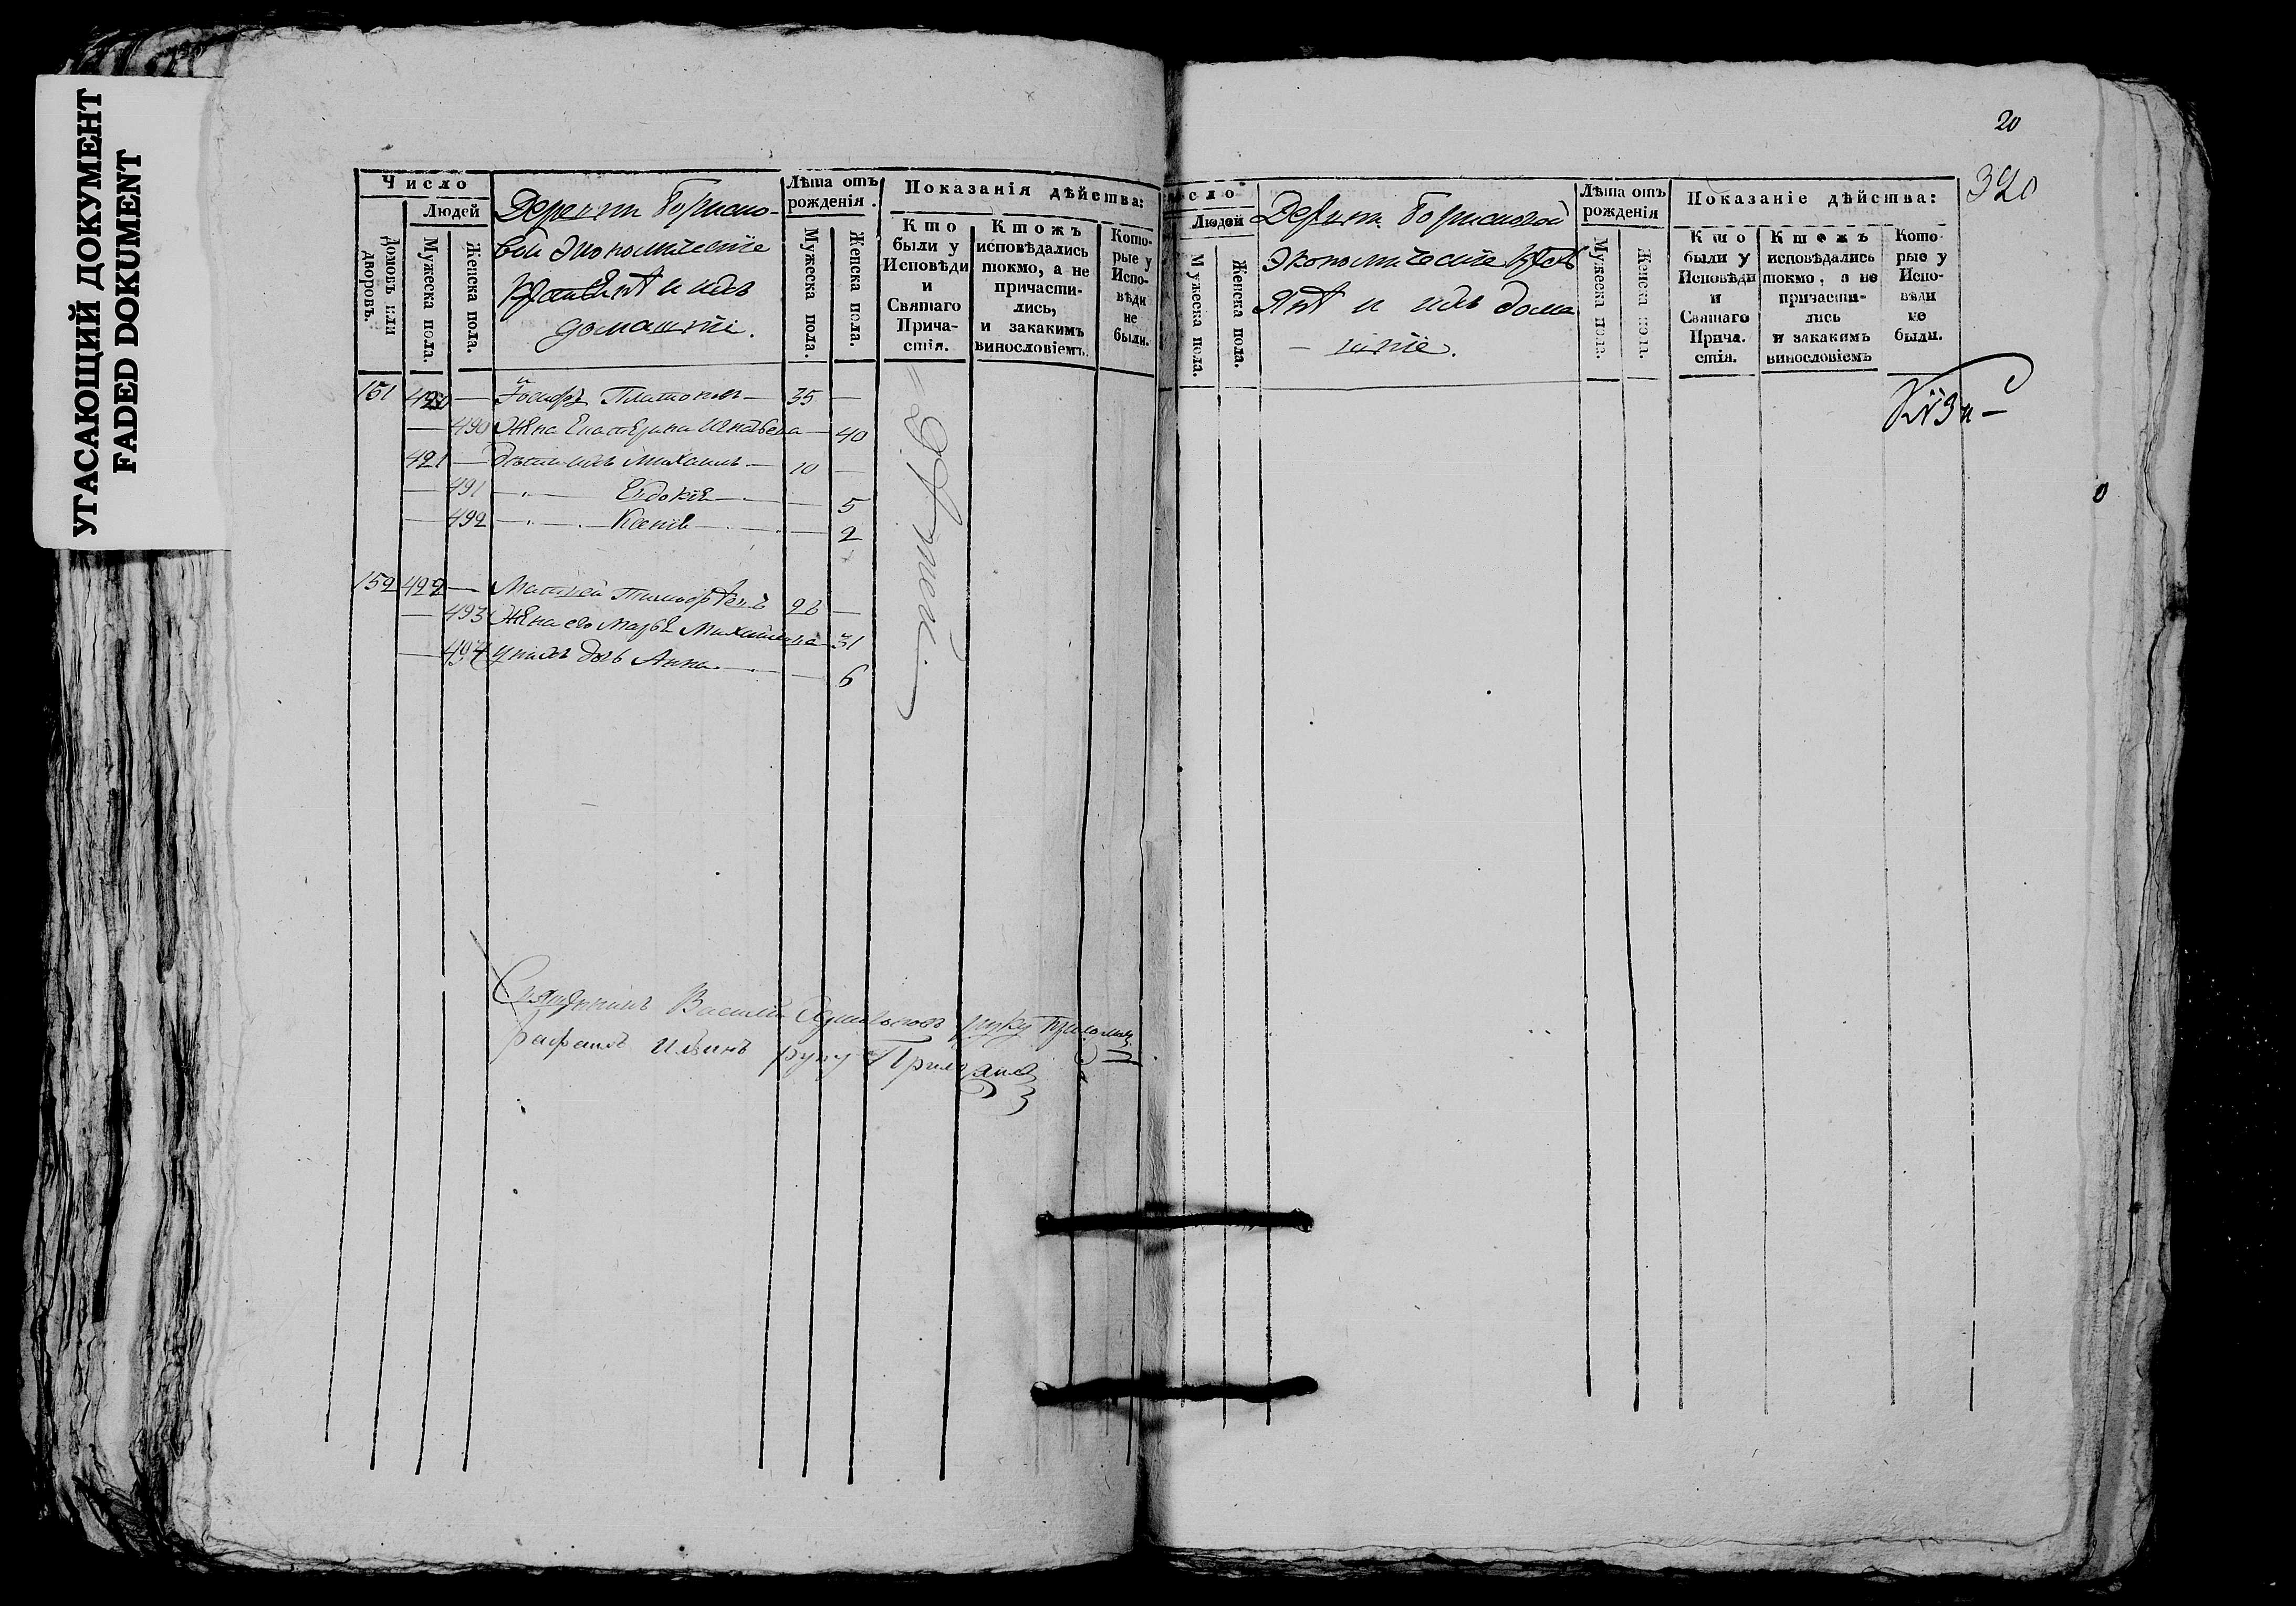 УГАСАЮЩИЙ ДОКУМЕНТ
FADED DOKUMENT
Число
Людей
Домовъ или дворовъ.
Мужеска пола.
Женска пола.
Деревни Борисо-
вой экономическіе
крестьянѣ и ихъ
домашніе.
Лѣта отъ рожденія.
Мужеска пола.
Женска пола.
Показанія дѣйства:
Кто были у Исповѣди и Святаго Прича-стія.
Ктожъ исповѣдались токмо, а не причасти-лись, и закакимъ винословіемъ.
Кото-рые у Испо-вѣди не были.
151 — Іосифъ Платоновъ — 35 —
— 490 Жена Екатерина Игнатьева — 40
421 — Дѣти ихъ Михаилъ — 10 —
— 491 — Евдокіе — 5
— 492 — Ксенія — 2
152 422 — Матвей Тимофѣевъ —
— 493 Жена его Марья Михайлова — 31
— 494 у нихъ дочь Анна — 6
Священникъ Василій руку приложилъ
Ильинъ руку Приложилъ
20
320
сло
Людей
Мужеска пола.
Женска пола.
Деревни Борисовой
экономическіе крест
янѣ и ихъ дома
шніе.
Лѣта отъ рожденія
Мужеска пола.
Женска пола.
Показаніе дѣйства:
Кто были у Исповѣди и Святаго Прича. стія.
Ктожъ исповѣдались токмо, а не причасти-лись и закакимъ винословіемъ
Кото-рые у Испо-вѣди не были.